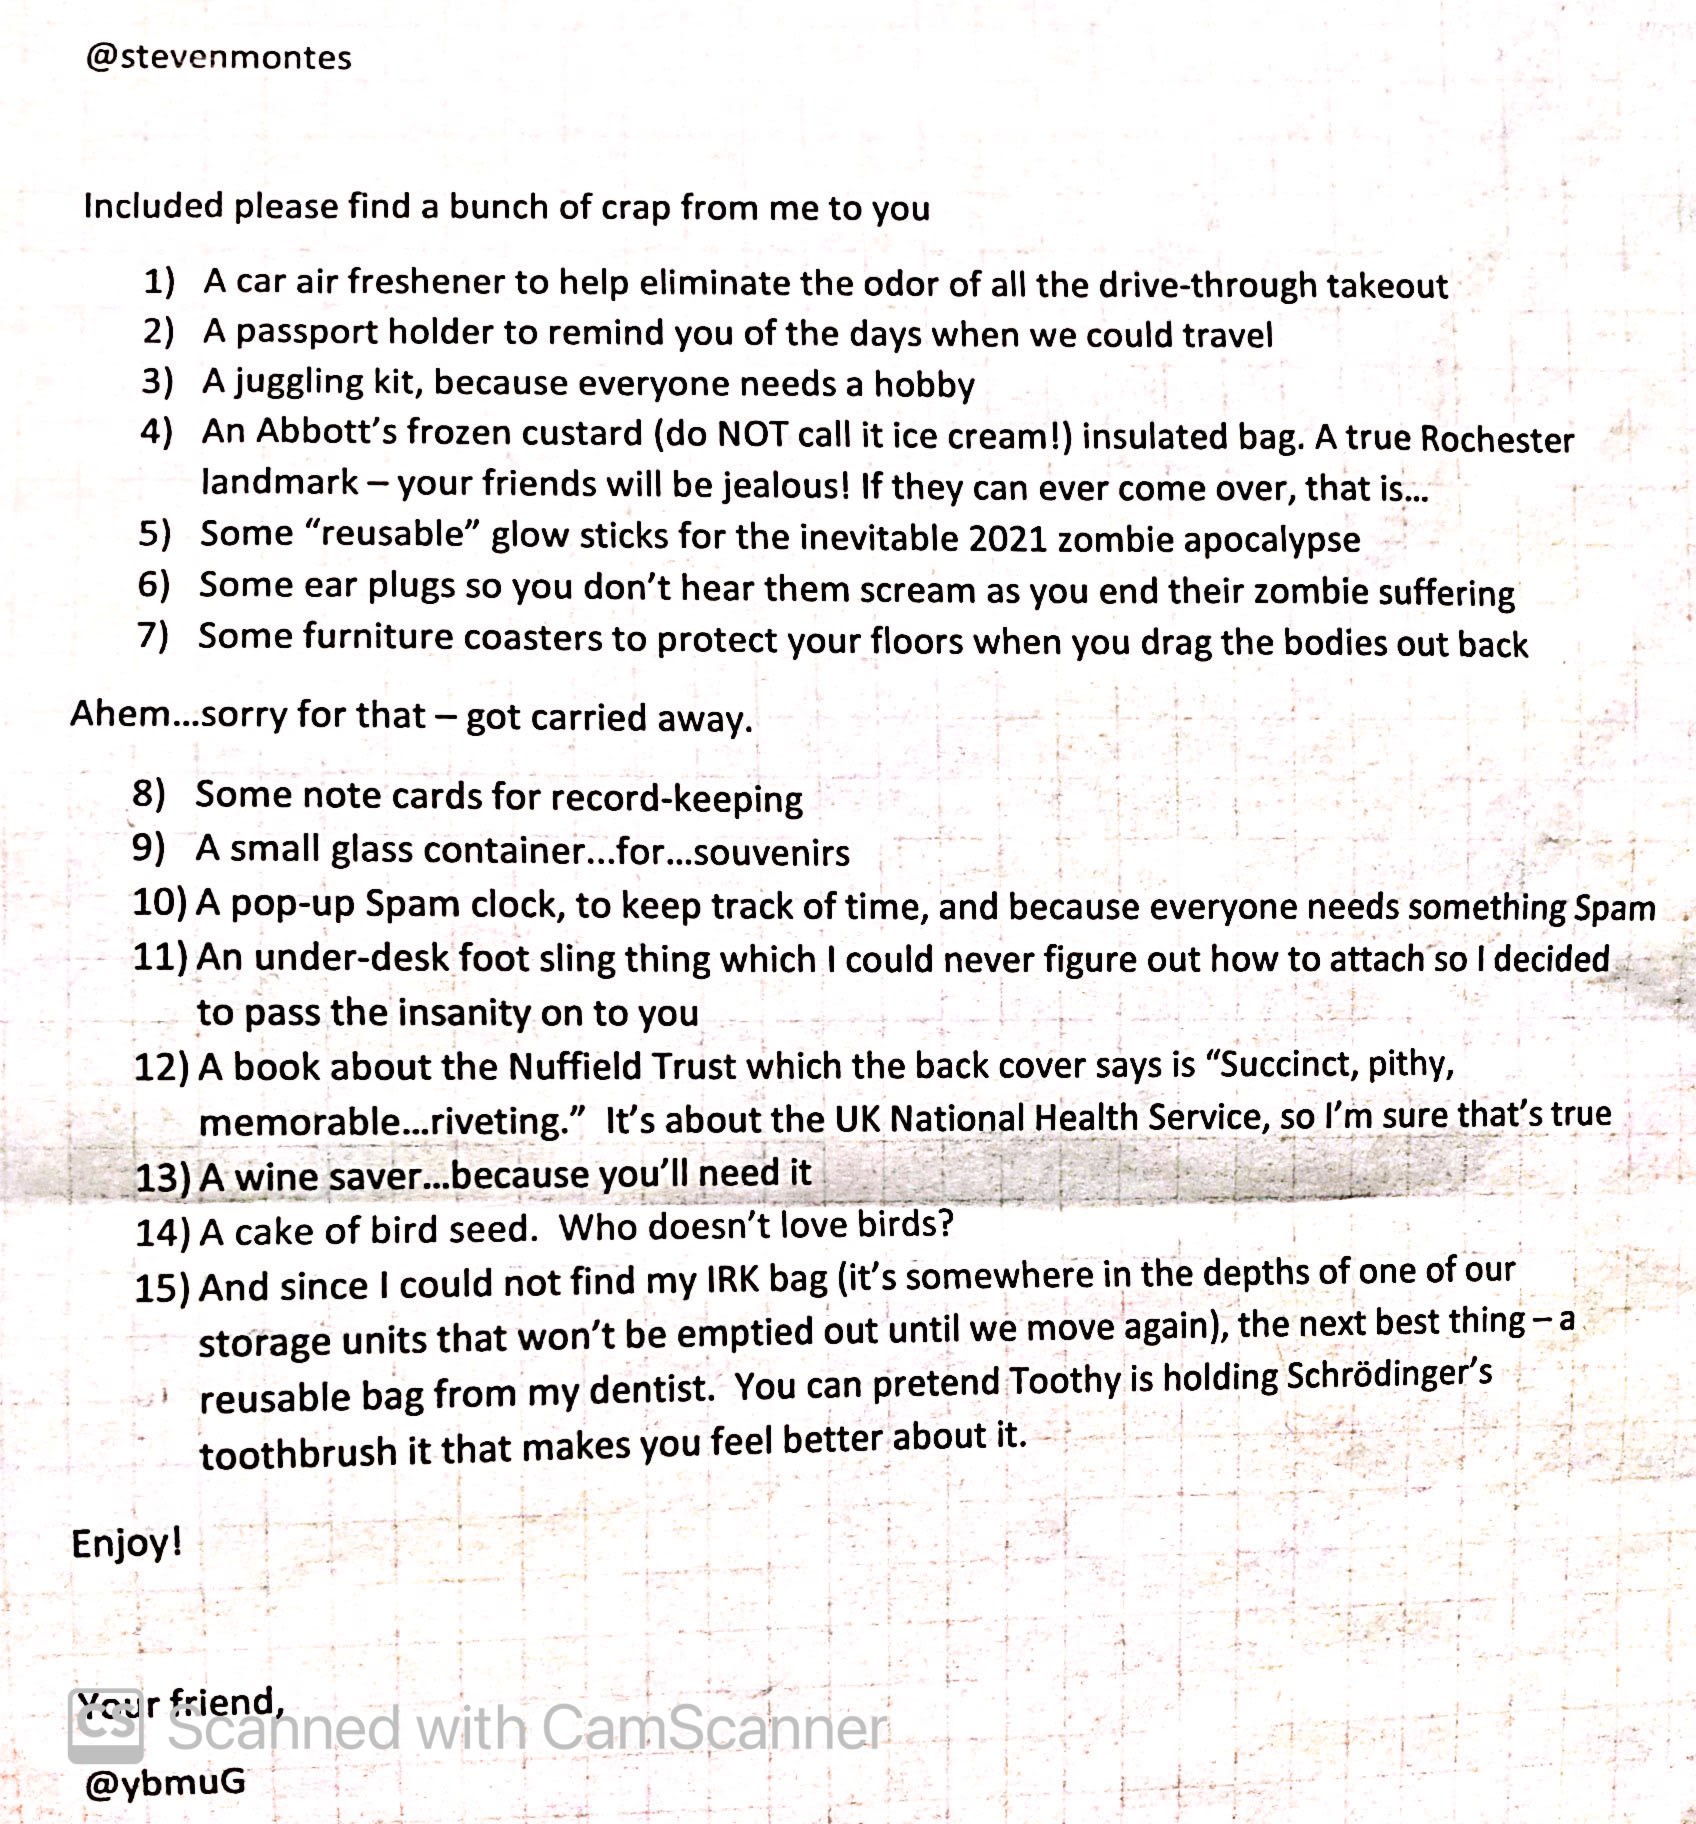 @stevenmontes
Included please find a bunch of crap from me to you
1) A car air freshener to help eliminate the odor of all the drive-through takeout
2) A passport holder to remind you of the days when we could travel
3) A juggling kit, because everyone needs a hobby
4) An Abbott's frozen custard (do NOT call it ice cream!) insulated bag. A true Rochester
landmark – your friends will be jealous! If they can ever come over, that is...
5) Some “reusable” glow sticks for the inevitable 2021 zombie apocalypse
6) Some ear plugs so you don't hear them scream as you end their zombie suffering
7) Some furniture coasters to protect your floors when you drag the bodies out back
Ahem...sorry for that – got carried away.
8) Some note cards for record-keeping
9) A small glass container...for...souvenirs
10) A pop-up Spam clock, to keep track of time, and because everyone needs something Spam
11) An under-desk foot sling thing which I could never figure out how to attach so I decided
to pass the insanity on to you
12) A book about the Nuffield Trust which the back cover says is “Succinct, pithy,
memorable...riveting.” It's about the UK National Health Service, so I'm sure that's true
13) A wine saver...because you'll need it
14) A cake of bird seed. Who doesn't love birds?
15) And since I could not find my IRK bag (it's somewhere in the depths of one of our
storage units that won't be emptied out until we move again), the next best thing – a
reusable bag from my dentist. You can pretend Toothy is holding Schrödinger's
toothbrush it that makes you feel better about it.
Enjoy!
Your friend,
CS Scanned with CamScanner
@ybmuG